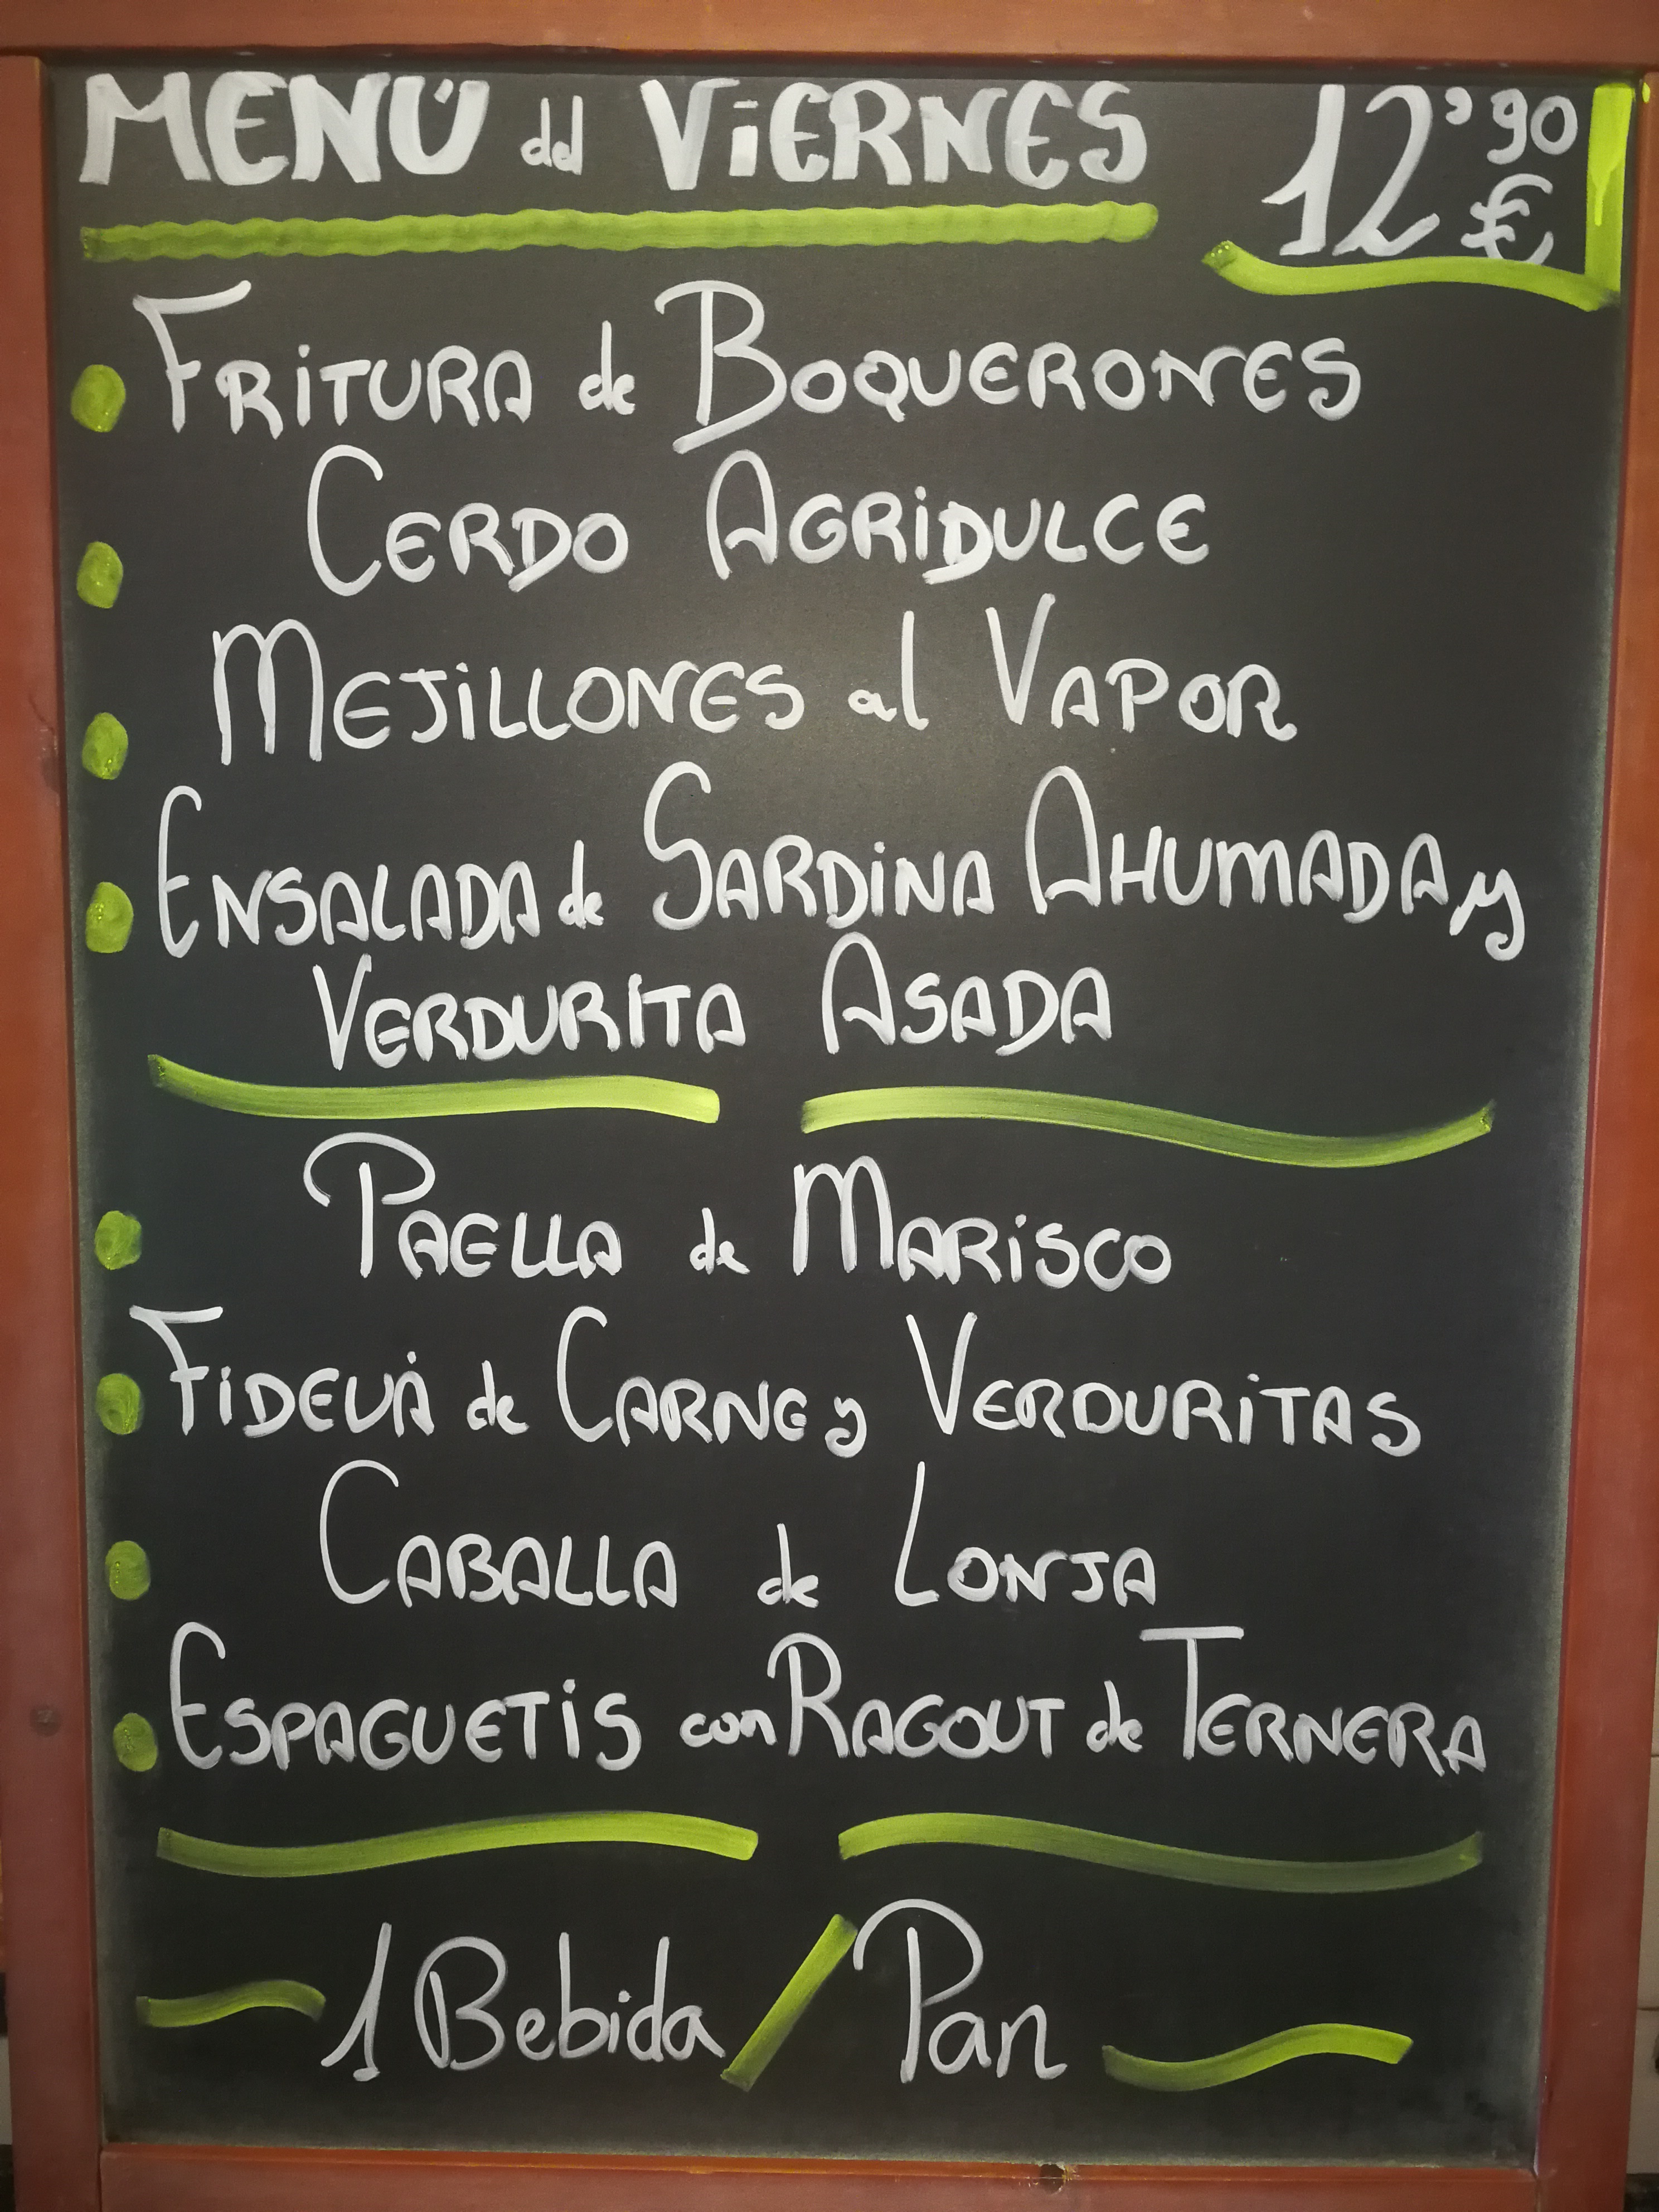 MENÚ del ViERNES 12'90 €
FRiTURA de BOQUERONES
CERDO AGRiDULCE
MEJiLLONES al VAPOR
ENSALADA de SARDiNA AHUMADA y
VERDURITA ASADA
PAELLA de MARiSCO
FiDEUÁ de CARNE y VERDURiTAS
CABALLA de LONJA
ESPAGUETiS con RAGOUT de TERNERA
1 Bebida / Pan